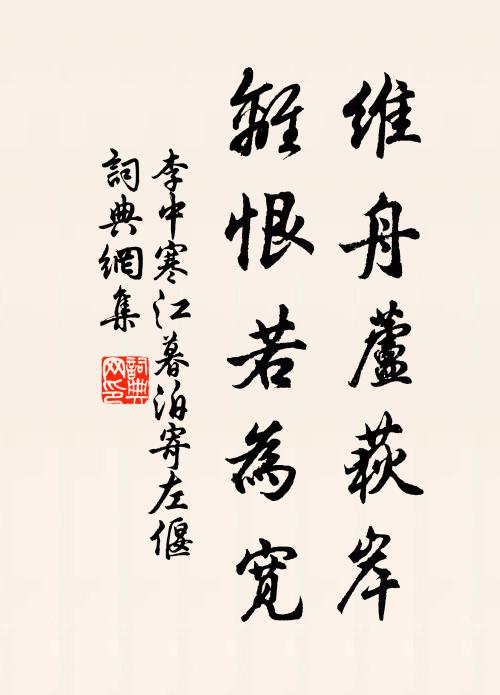 维舟蘆荻岸
離恨若為寬
李中寒江暮泊寄左偃
詞典網集
詞典网印